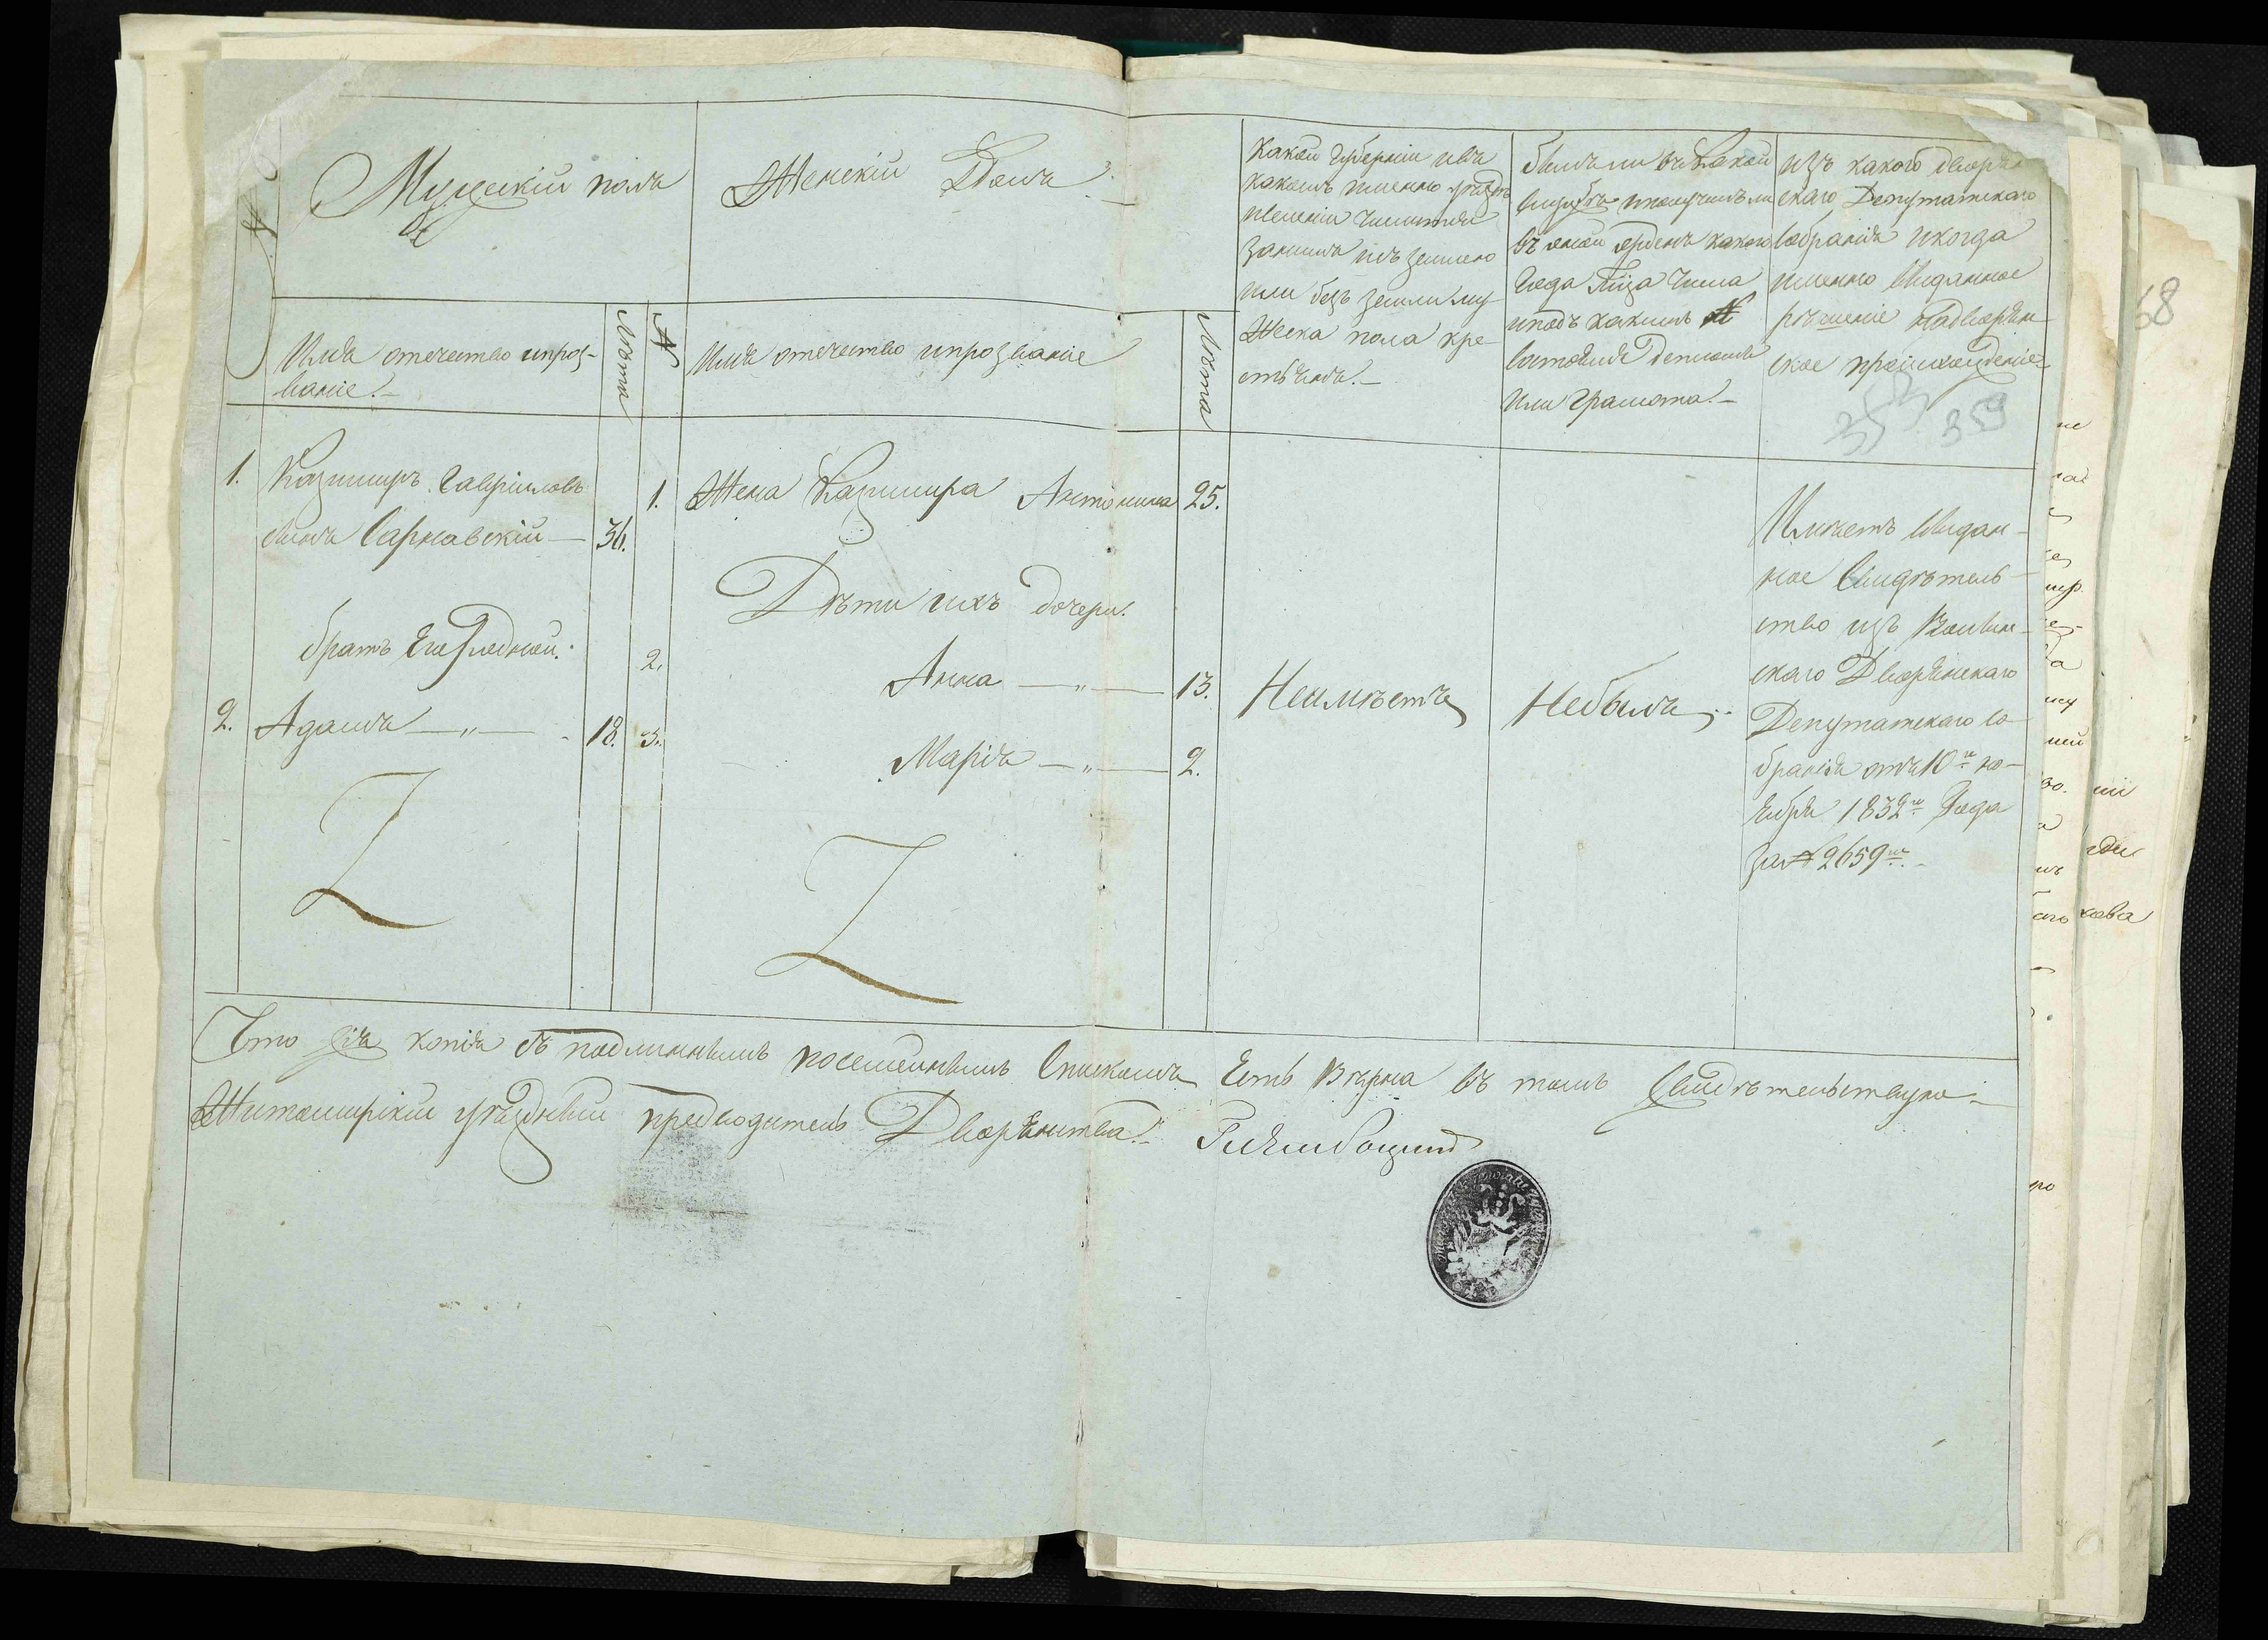 №
Мужескій полъ
Женскій Полъ
Имя отечество и проз-
ваніе.
Лѣта
№
Имя отечество и прозваніе
Лѣта
Какой Губерніи и въ
какомъ именно уѣздѣ
имѣніи
и съ землею
или безъ земли му-
жеска пола кре-
стьянъ.
былъ ли въ какой
службѣ и получилъ ли
въ оной орденъ какого
Года М-ца Числа
и подъ какимъ №
состоялся дипломъ
или Грамота.
изъ какого дворян
скаго Депутатскаго
собранія и когда
именно выданное
рѣшеніе на дворян-
ское происхожденіе
353 359
68
1. Казимиръ Гавриловъ
сынъ Сарнавскій — 36.
братъ Его родной:
2. Адамъ — „ — 18.
1. Жена Казимира Антонина 25.
Дѣти ихъ дочери.
2. Анна — „ — 13.
3. Марія — „ — 2.
Неимѣетъ
Небылъ
Имѣетъ выдан-
ное Свидѣтель-
ство изъ Волын-
скаго Дворянскаго
Депутатскаго Со-
бранія отъ 10го но-
ября 1832го Года
за № 2659мъ
Что сія копія съ подлиннымъ посемейнымъ Спискомъ Есть Вѣрна въ томъ Свидѣтельствую
Житомирскій уѣздный предводитель Дворянства.